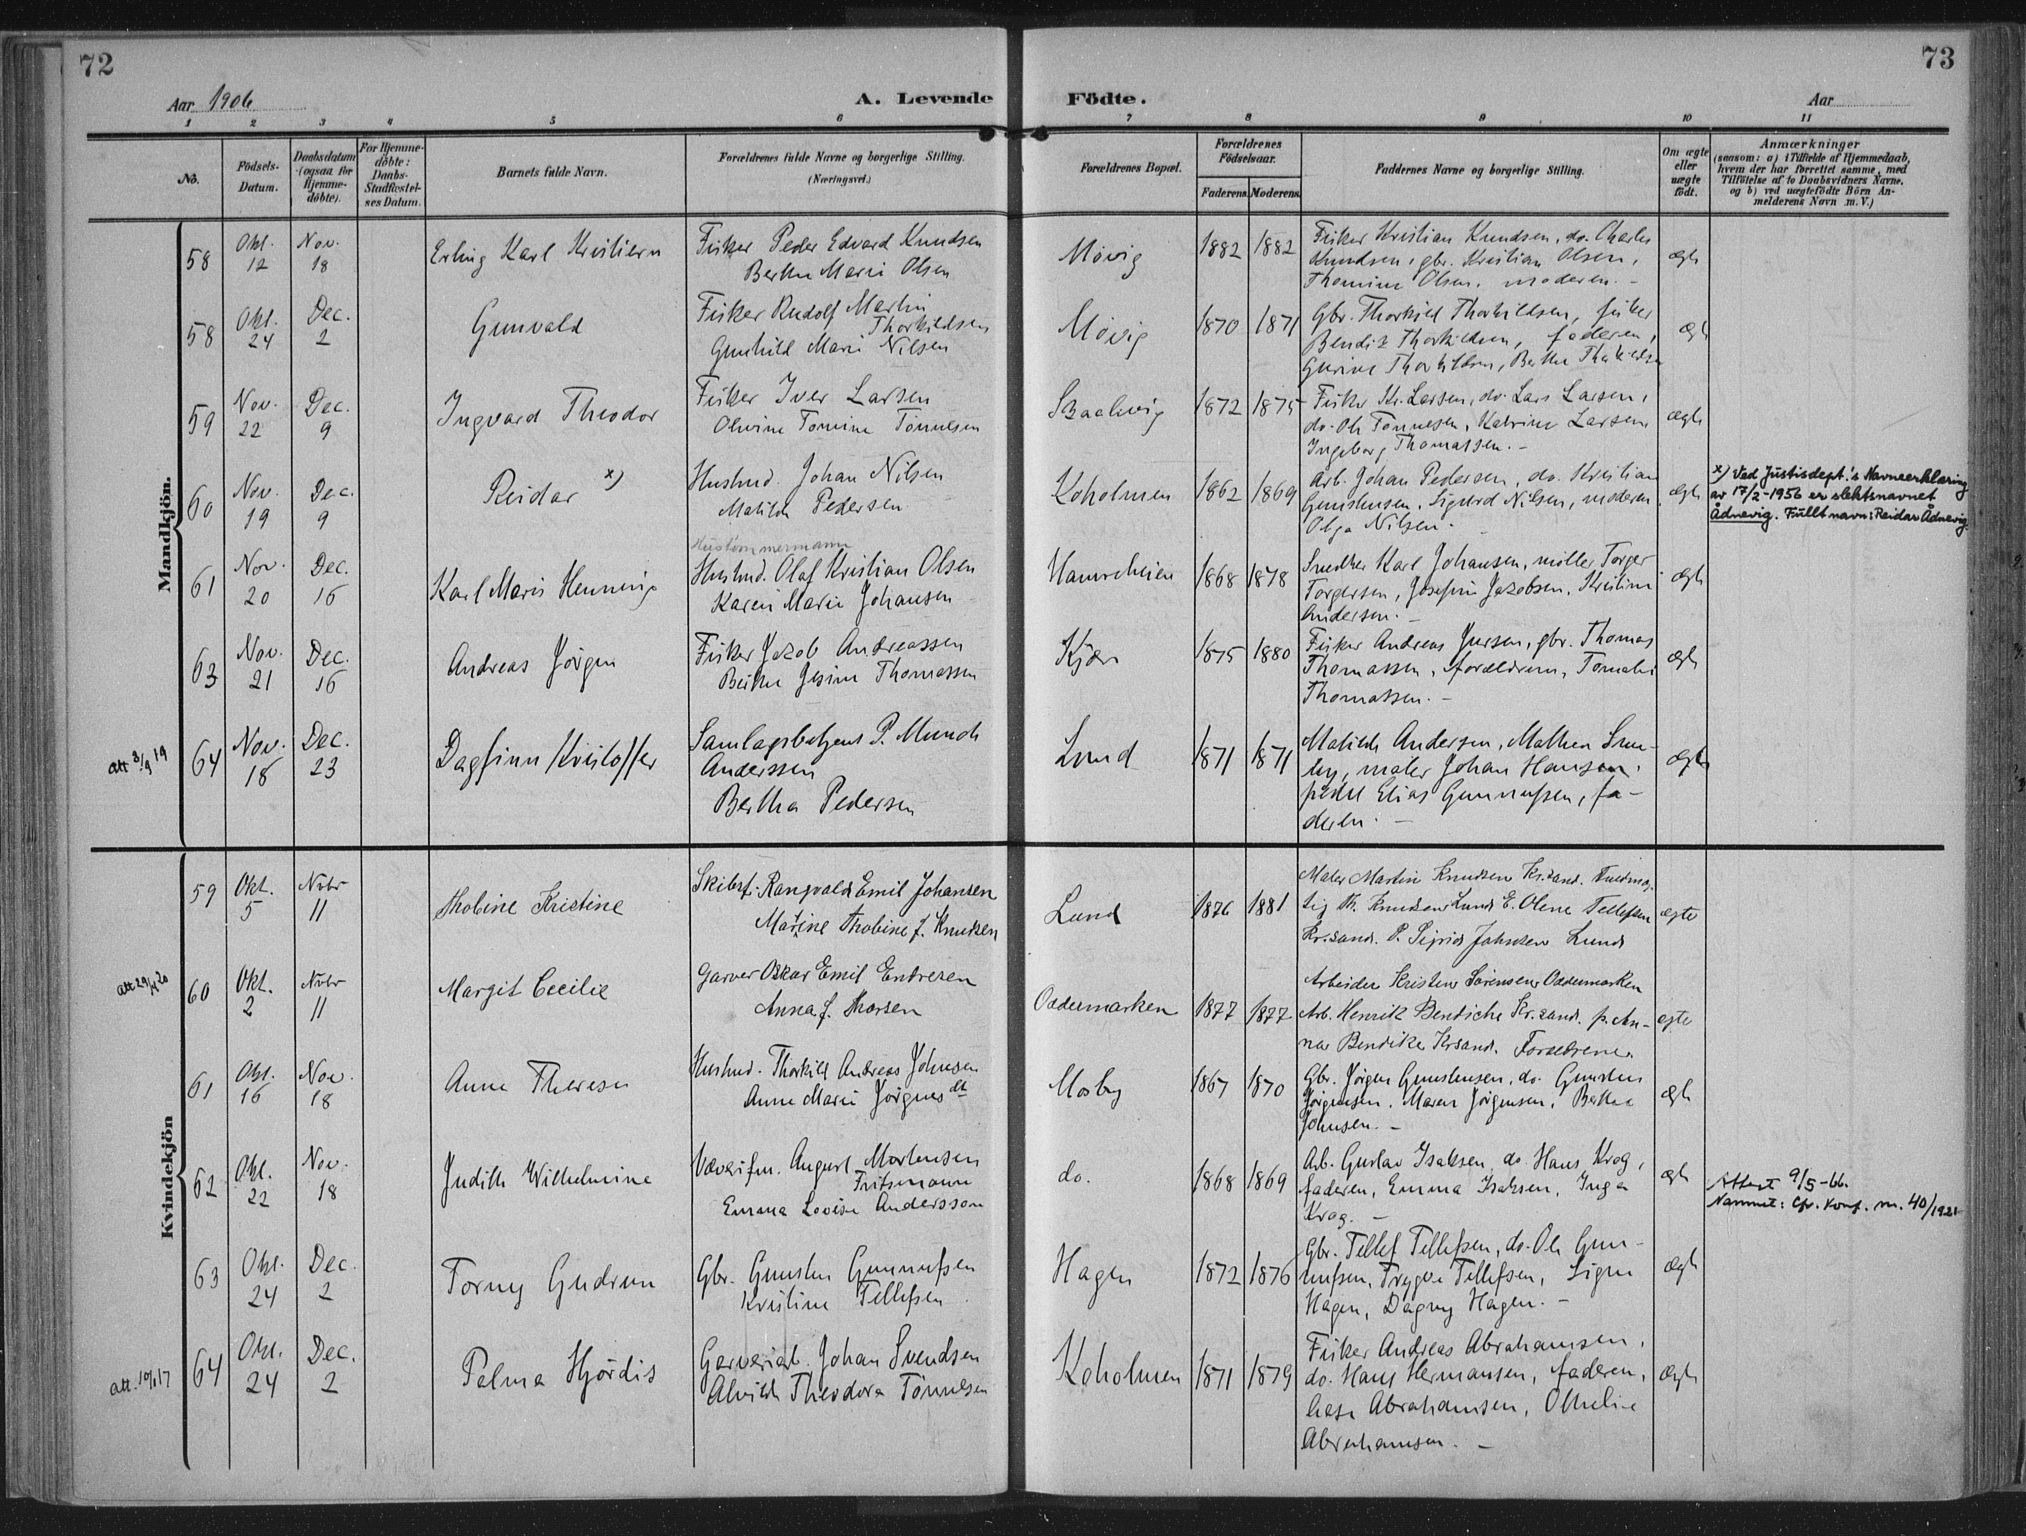 72
73
Aar 1906
A. Levende Födte.
Aar
1 2 3 4 5 6 7 8 9 10 11
No.
Födsels-Datum.
Daabsdatum (ogsaa for Hjemme-döbte).
For Hjemme-döbte: Daabs-Stadfæstelses Datum.
Barnets fulde Navn.
Forældrenes fulde Navne og borgerlige Stilling.
(Næringsvei.)
Forældrenes Bopæl.
Forældrenes Födselsaar.
Faderens. Moderens.
Faddernes Navne og borgerlige Stilling.
Om ægte eller uægte födt.
Anmærkninger
(saasom: a) i Tilfælde af Hjemmedaab,
hvem der har forrettet samme, med
Tilföielse af to Daabsvidners Navne,
og b) ved uægtefödte Börn An-
melderens Navn m. V.)
Mandkjön.
58 Okt. 12 Nov. 18 Erling Karl Kristiern
Fisker Peder Edvard Knudsen
Berthe Marie Olsen
Møvig 1882 1882
Fisker Kristian Knudsen, do. Charles
Knudsen, gbr. Kristian Olsen,
Thomine Olsen, moderen. -
ægte
58 Okt. 24 Dec. 2 Gunvald
Fisker Rudolf Martin
Thorkildsen
Gunhild Marie Nilsen
Møvig 1870 1871
Gbr. Thorkild Thorkildsen, fisker
Bendix Thorkildsen, faderen,
Gurine Thorkildsen, Berthe Thorkildsen
ægte
59 Nov. 22 Dec. 9 Ingvard Theodor
Fisker Iver Larsen
Olivine Tomine Tönnesen
1872 1875
Fisker Kr. Larsen, do. Lars Larsen,
do. Ole Tönnesen, Katrine Larsen
Ingeborg Thomassen. -
ægte
60 Nov. 19 Dec. 9 Reidar x)
Husmd. Johan Nilsen
Matilde Pedersen
Koholmen 1862 1869
Arb. Johan Pedersen, do. Kristian
Gunstensen, Sigurd Nilsen, moderen,
Olga Nilsen.
ægte
x) Ved Justisdept.'s Navneerklæring
av 17/2-1956 er slektsnavnet
Ådnevig. Fullt navn: Reidar Ådnevig.
61 Nov. 20 Dec. 16 Karl Maris Henning
Hustömmermann
Husmd. Olaf Kristian Olsen
Karen Marie Johansen
Hamreheien 1868 1878
Smedker Karl Johansen, möller Torger
Torgersen, Josefine Jacobsen, Kristine
Andersen. -
ægte
63 Nov. 21 Dec. 16 Andreas Jörgen
Fisker Jacob Andreassen
Berthe Jesine Thomassen
Kjær 1875 1880
Fisker Andreas Jensen, gbr. Thomas
Thomassen, forældrene, Tomalie
Thomassen. -
ægte
att 3/9 19
64 Nov. 18 Dec. 23 Dagfinn Kristoffer
Samlagsbetjent P. Munch
Anderssen
Bertha Pedersen
Lund 1871 1871
Matilde Andersen, Mathea
maler Johan Hansen,
pedel Elias Gunnufsen, fa-
deren. -
ægte
Kvindekjön
59 Okt. 5 Novbr 11 Thobine Kristine
Skibsf. Rangvald Emil Johansen
Martine Thobine f. Knudsen
Lund 1876 1881
Maler Martin Knudsen Kr.sand.
Th. Knudsen Lund E. Olene Tellefsen
Kr.sand. P. Sigrid Johnsen Lund
ægte
att 29/4 20
60 Okt. 2 Novbr 11 Margit Cecilie
Garver Oskar Emil Endresen
Anna f. Thorsen
Oddermarken 1877 1877
Arbeider Kristen Sörensen Oddermarken
Arb. Henrik Bendiche Kr.sand. p. An-
na Bendike Krsand. Forældrene.
ægte
61 Okt. 16 Nov. 18 Anne Therese
Husmd. Thorkild Andreas Johnsen
Anne Marie Jörgensdt
Mosby 1867 1870
Gbr. Jörgen Gunstensen, do. Gunsten
Jörgensen, Maren Jörgensen, Berthe
Johnsen. -
ægte
62 Okt. 22 Nov. 18 Judith Wilhelmine
Væverifm. August Mortensen
Fritsmann
Emma Lovise Andersson
do. 1868 1869
Arb. Gustav Isaksen, do. Hans Krog,
faderen, Emma Isaksen, Inga
Krog. -
ægte
Attest 9/5-66.
Navnet: Cfr. konf. nr. 40/1921
63 Okt. 24 Dec. 2 Torny Gudrun
Gbr. Gunsten Gunnufsen
Kristine Tellefsen
Hagen 1872 1876
Gbr. Tellef Tellefsen, do. Ole Gun-
nufsen, Trygve Tellefsen, Signe
Hagen, Dagny Hagen. -
ægte
att. 10/1 17
64 Okt. 24 Dec. 2 Palma Hjördis
Garveriarb. Johan Svendsen
Alvilde Theodora Tönnesen
Koholmen 1871 1879
Fisker Andreas Abrahamsen,
do. Hans Hermansen, faderen,
Abrahamsen, Otheline
Abrahamsen. -
ægte